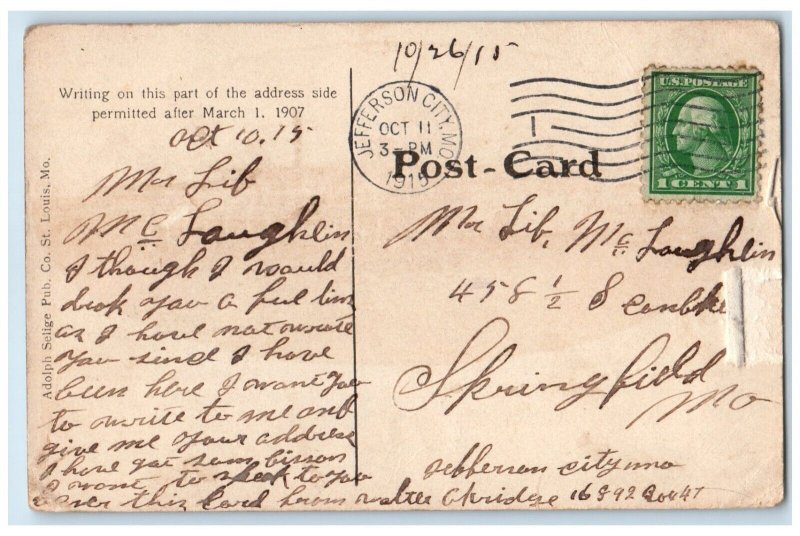 10/26/15
Writing on this part of the address side
permitted after March 1, 1907
Adolph Selige Pub. Co. St. Louis, Mo.
JEFFERSON CITY, MO.
OCT 11
3-PM
1915
U.S. POSTAGE
1 CENT 1
Post-Card
oct 10, 15
Mr Lib
Mc Laughlin
I though I would
drop you a few lins
as I have not wrote
you sind I have
been here I want you
to write to me and
give me your address
I have got som bisson
I want to speek to you
over this card from walter Akridge 16892
Mr Lib, Mc Laughlin
458 ½ S
Springfield
Mo
Jefferson city mo